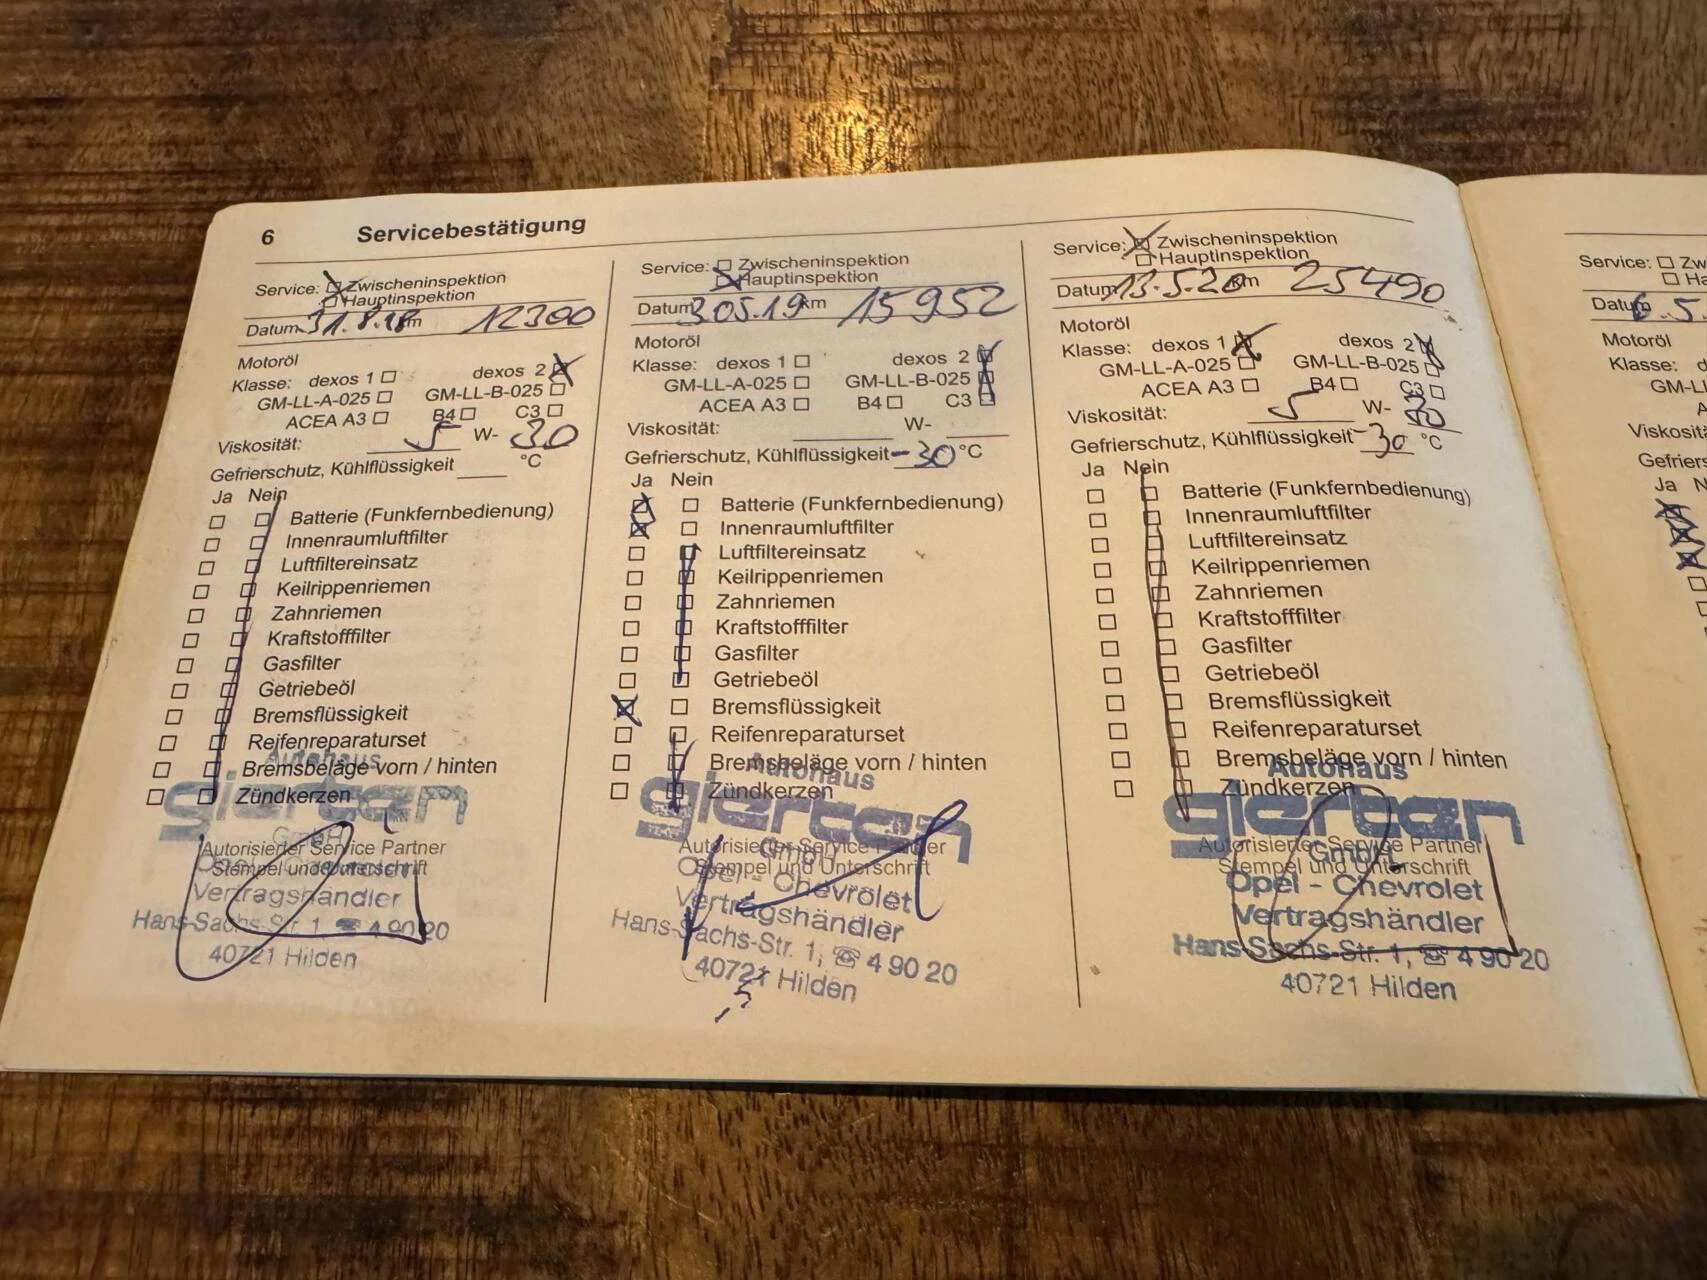 6 Servicebestätigung
Service: Zwischeninspektion
Hauptinspektion
Datum 31.8.18 km 12300
Motoröl
Klasse: dexos 1 dexos 2
GM-LL-A-025 GM-LL-B-025
ACEA A3 B4 C3
Viskosität: 5 W- 30
Gefrierschutz, Kühlflüssigkeit °C
Ja Nein
Batterie (Funkfernbedienung)
Innenraumluftfilter
Luftfiltereinsatz
Keilrippenriemen
Zahnriemen
Kraftstofffilter
Gasfilter
Getriebeöl
Bremsflüssigkeit
Reifenreparaturset
Bremsbeläge vorn / hinten
Zündkerzen
Autohaus
gierten
GmbH
Autorisierter Service Partner
Stempel und Unterschrift
Vertragshändler
Hans-Sachs-Str. 1, ☎ 4 90 20
40721 Hilden
Service: Zwischeninspektion
Hauptinspektion
Datum 3.05.19 km 15952
Motoröl
Klasse: dexos 1 dexos 2
GM-LL-A-025 GM-LL-B-025
ACEA A3 B4 C3
Viskosität: W-
Gefrierschutz, Kühlflüssigkeit -30 °C
Ja Nein
Batterie (Funkfernbedienung)
Innenraumluftfilter
Luftfiltereinsatz
Keilrippenriemen
Zahnriemen
Kraftstofffilter
Gasfilter
Getriebeöl
Bremsflüssigkeit
Reifenreparaturset
Bremsbeläge vorn / hinten
Zündkerzen
Autohaus
gierten
GmbH
Autorisierter Service Partner
Stempel und Unterschrift
Opel - Chevrolet
Vertragshändler
Hans-Sachs-Str. 1, ☎ 4 90 20
40721 Hilden
Service: Zwischeninspektion
Hauptinspektion
Datum 13.5.20 km 25490
Motoröl
Klasse: dexos 1 dexos 2
GM-LL-A-025 GM-LL-B-025
ACEA A3 B4 C3
Viskosität: 5 W- 30
Gefrierschutz, Kühlflüssigkeit -30 °C
Ja Nein
Batterie (Funkfernbedienung)
Innenraumluftfilter
Luftfiltereinsatz
Keilrippenriemen
Zahnriemen
Kraftstofffilter
Gasfilter
Getriebeöl
Bremsflüssigkeit
Reifenreparaturset
Bremsbeläge vorn / hinten
Zündkerzen
Autohaus
gierten
GmbH
Autorisierter Service Partner
Stempel und Unterschrift
Opel - Chevrolet
Vertragshändler
Hans-Sachs-Str. 1, ☎ 4 90 20
40721 Hilden
Service: Zw
Ha
Datum 6.5.
Motoröl
Klasse: d
GM-LL
A
Viskositä
Gefriers
Ja N